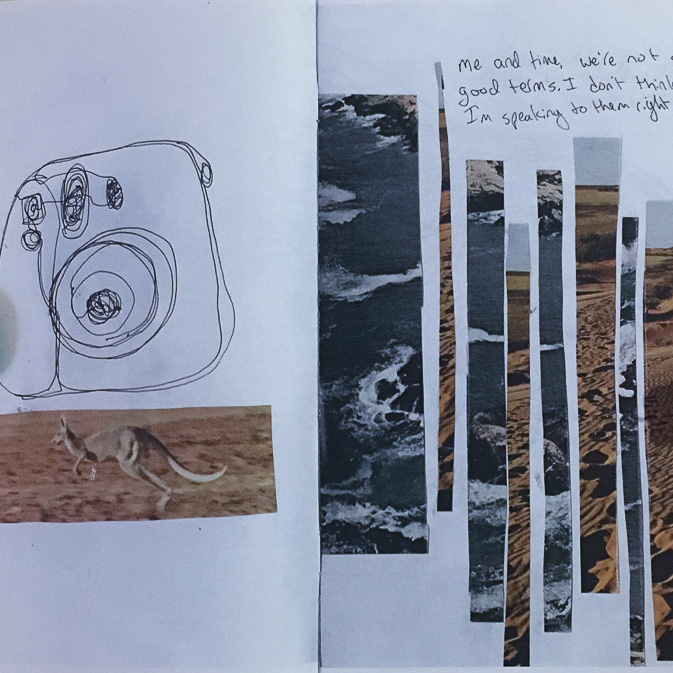 me and time, we're not
good terms. I don't think
I'm speaking to them right